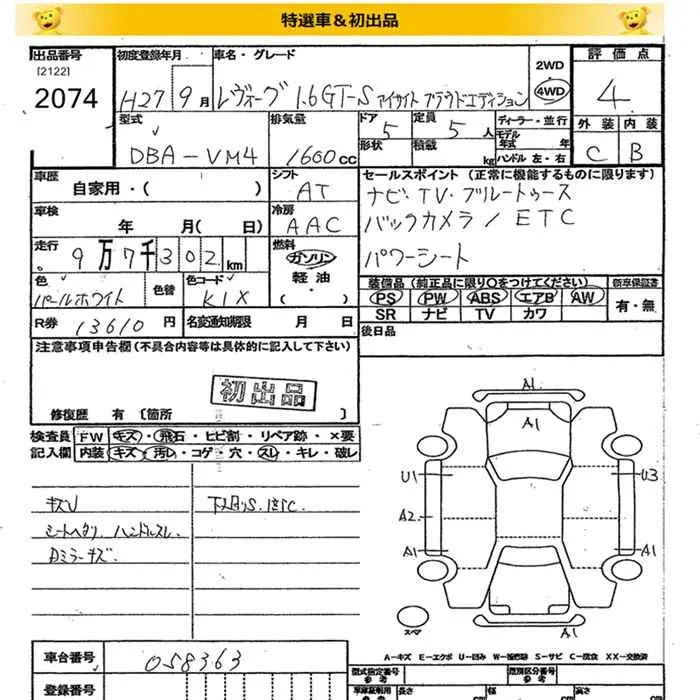 特選車＆初出品
出品番号
[2122]
2074
初度登録年月
H27 9月
車名・グレード
レヴォーグ 1.6GT-S アイサイト プラウドエディション
2WD
4WD
評価点
4
外装 内装
C B
型式
DBA-VM4
排気量
1600cc
ドア
5
定員
5人
形状
積載
kg
ディーラー・並行
モデル年式 年
ハンドル 左・右
車歴
自家用・( )
シフト
AT
セールスポイント (正常に機能するものに限ります)
ナビ・TV・ブルートゥース
バックカメラ / ETC
パワーシート
車検
年 月( 日)
冷房
AAC
走行
9万7千302km
燃料
ガソリン
軽油
( )
色
パールホワイト
色替
色コード
K1X
装備品 (純正品に限り○をつけてください)
PS PW ABS エアB AW
SR ナビ TV カワ
新車保証書
有・無
R券 13610円
名変通知期限 月 日
後日品
注意事項申告欄 (不具合内容等は具体的に記入して下さい)
初出品
修復歴 有 〔箇所 〕
検査員記入欄
FW キズ・飛石・ヒビ割・リペア跡・×要
内装 キズ・汚レ・コゲ・穴・スレ・キレ・破レ
キズU
シートヘタリ ハンドルスレ
Dミラーキズ
A1
A1
U1
U3
A2
A1
A1
A1
スペア
A=キズ E=エクボ U=凹み W=補修跡 S=サビ C=腐食 XX=交換済
車台番号
058363
登録番号
型式指定番号
参考
類別区分番号
参考
長さ
cm
幅
cm
高さ
cm